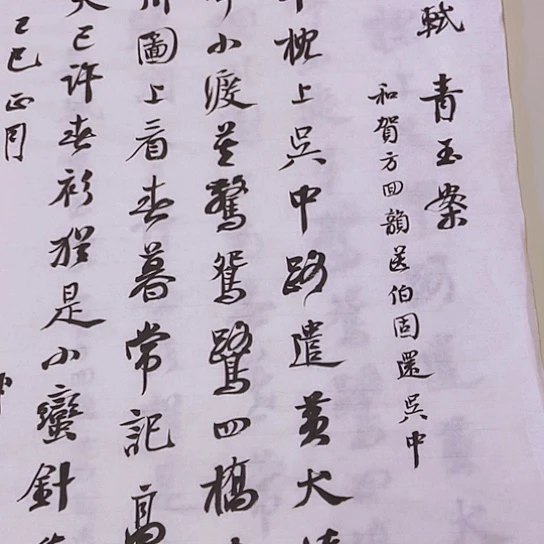 軾 青玉案
和賀方回韻送伯固還吳中
年枕上吳中路遣黃犬
小渡莫驚鴛鷺四橋
川圖上看春暮常記高
天已許春衫猶是小蠻針
乙巳正月